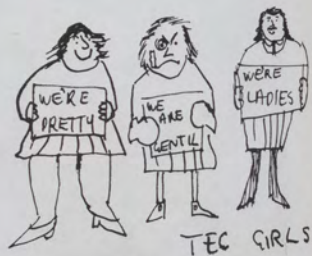 WE'RE
PRETTY
WE
ARE
GENTLE
WE'RE
LADIES
TEC GIRLS